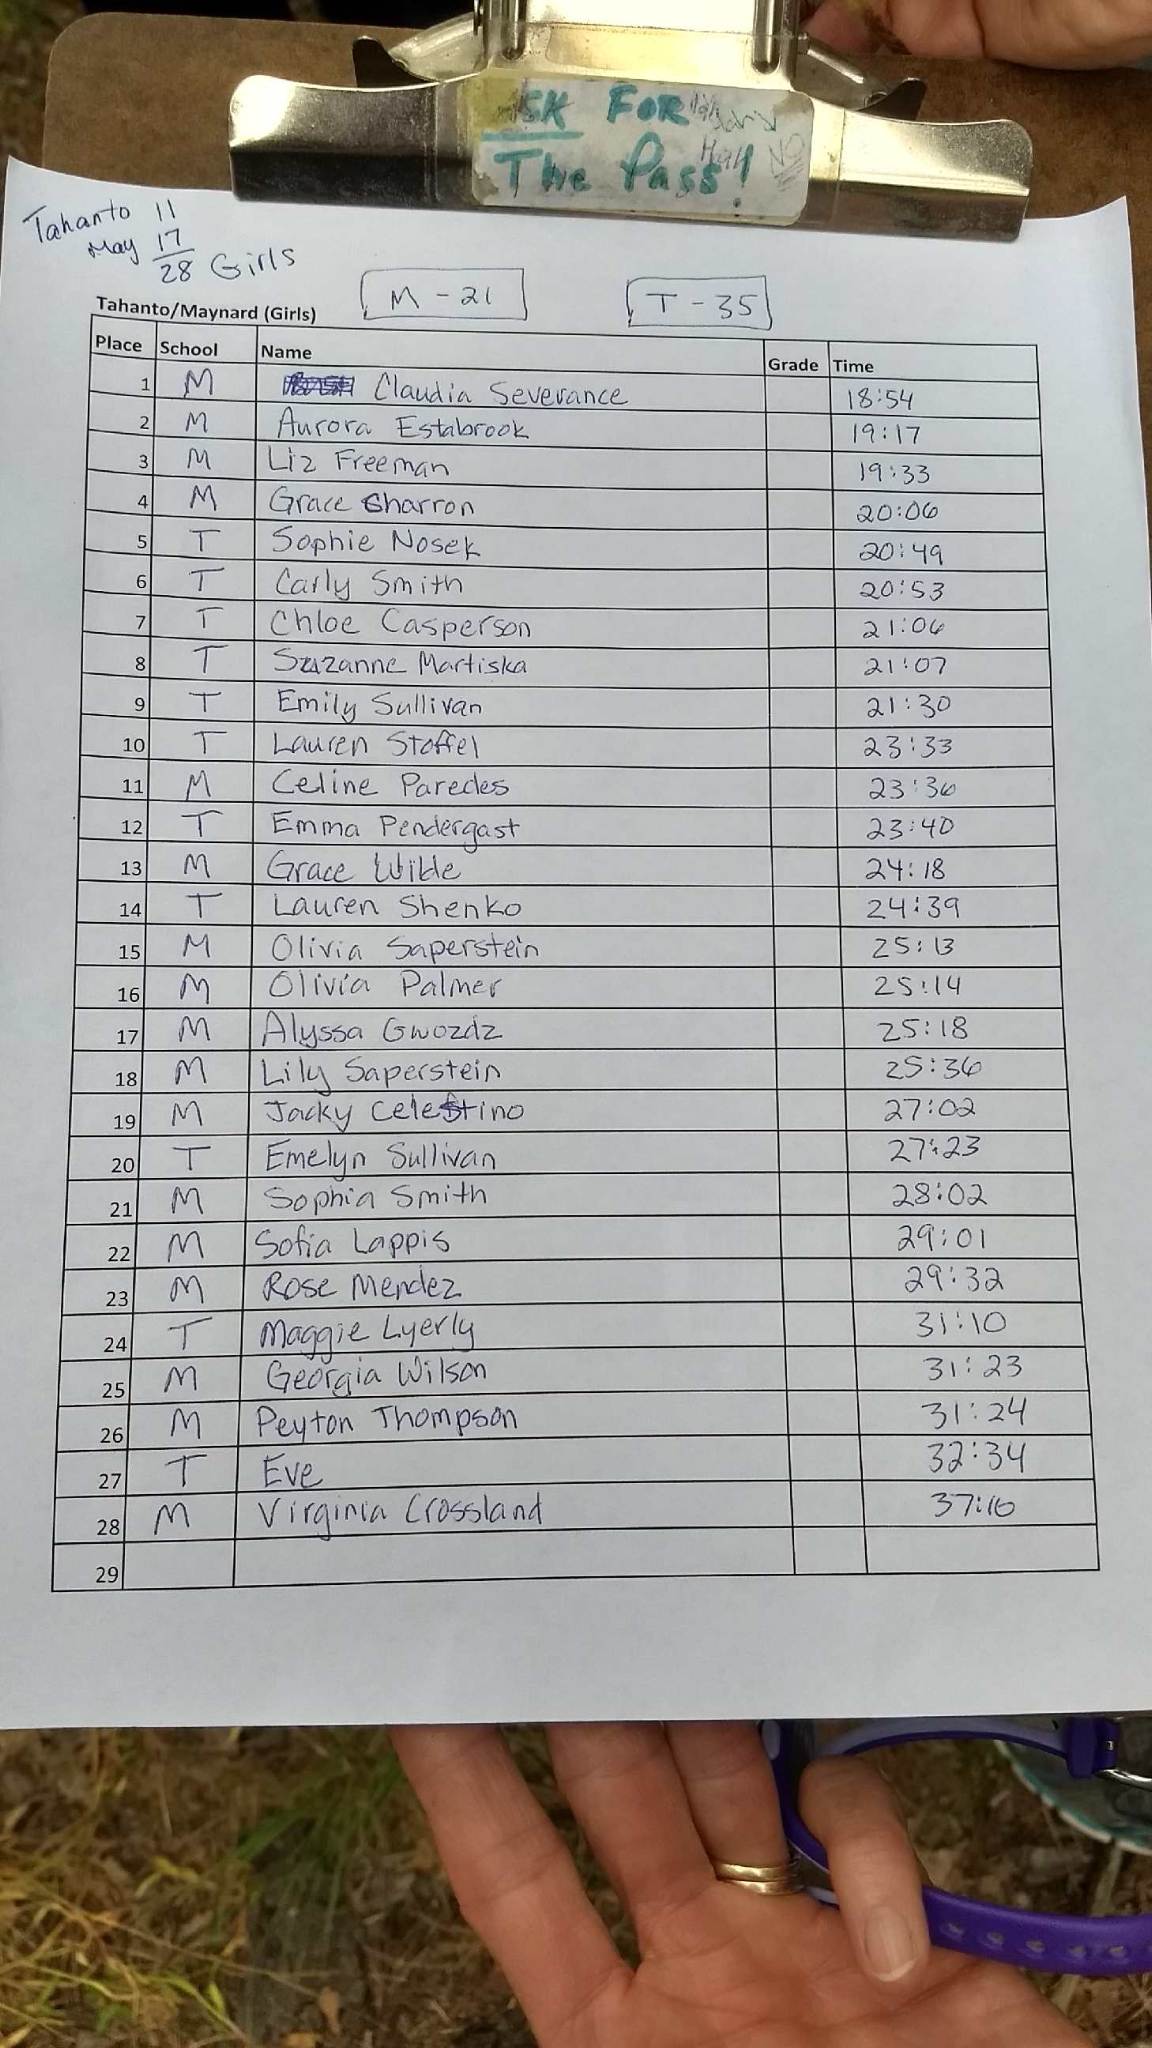 ASK FOR
The Pass!
Tahanto 11
May 17
28 Girls
M - 21
T - 35
Tahanto/Maynard (Girls)
Place School Name Grade Time
1 M Claudia Severance 18:54
2 M Aurora Estabrook 19:17
3 M Liz Freeman 19:33
4 M Grace Sharron 20:06
5 T Sophie Nosek 20:49
6 T Carly Smith 20:53
7 T Chloe Casperson 21:06
8 T Suzanne Martiska 21:07
9 T Emily Sullivan 21:30
10 T Lauren Stoffel 23:33
11 M Celine Paredes 23:36
12 T Emma Pendergast 23:40
13 M Grace Wilde 24:18
14 T Lauren Shenko 24:39
15 M Olivia Saperstein 25:13
16 M Olivia Palmer 25:14
17 M Alyssa Gwozdz 25:18
18 M Lily Saperstein 25:36
19 M Jacky Celestino 27:02
20 T Emelyn Sullivan 27:23
21 M Sophia Smith 28:02
22 M Sofia Lappis 29:01
23 M Rose Mendez 29:32
24 T Maggie Lyerly 31:10
25 M Georgia Wilson 31:23
26 M Peyton Thompson 31:24
27 T Eve 32:34
28 M Virginia Crossland 37:16
29